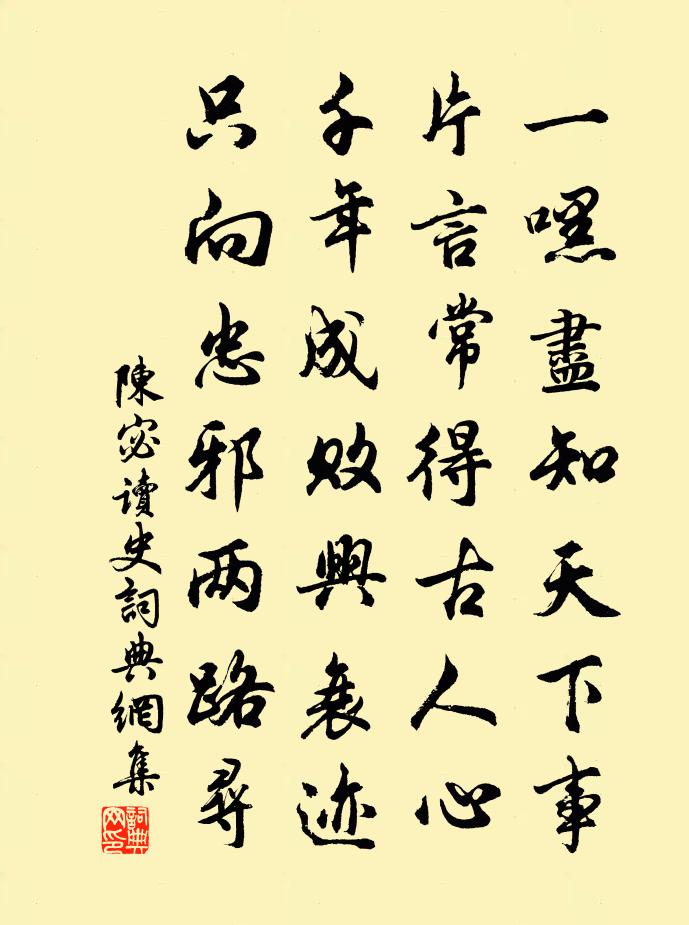 一嘿盡知天下事
片言常得古人心
千年成敗興衰迹
只向忠邪两路尋
陳宓讀史詞典網集
詞典网印